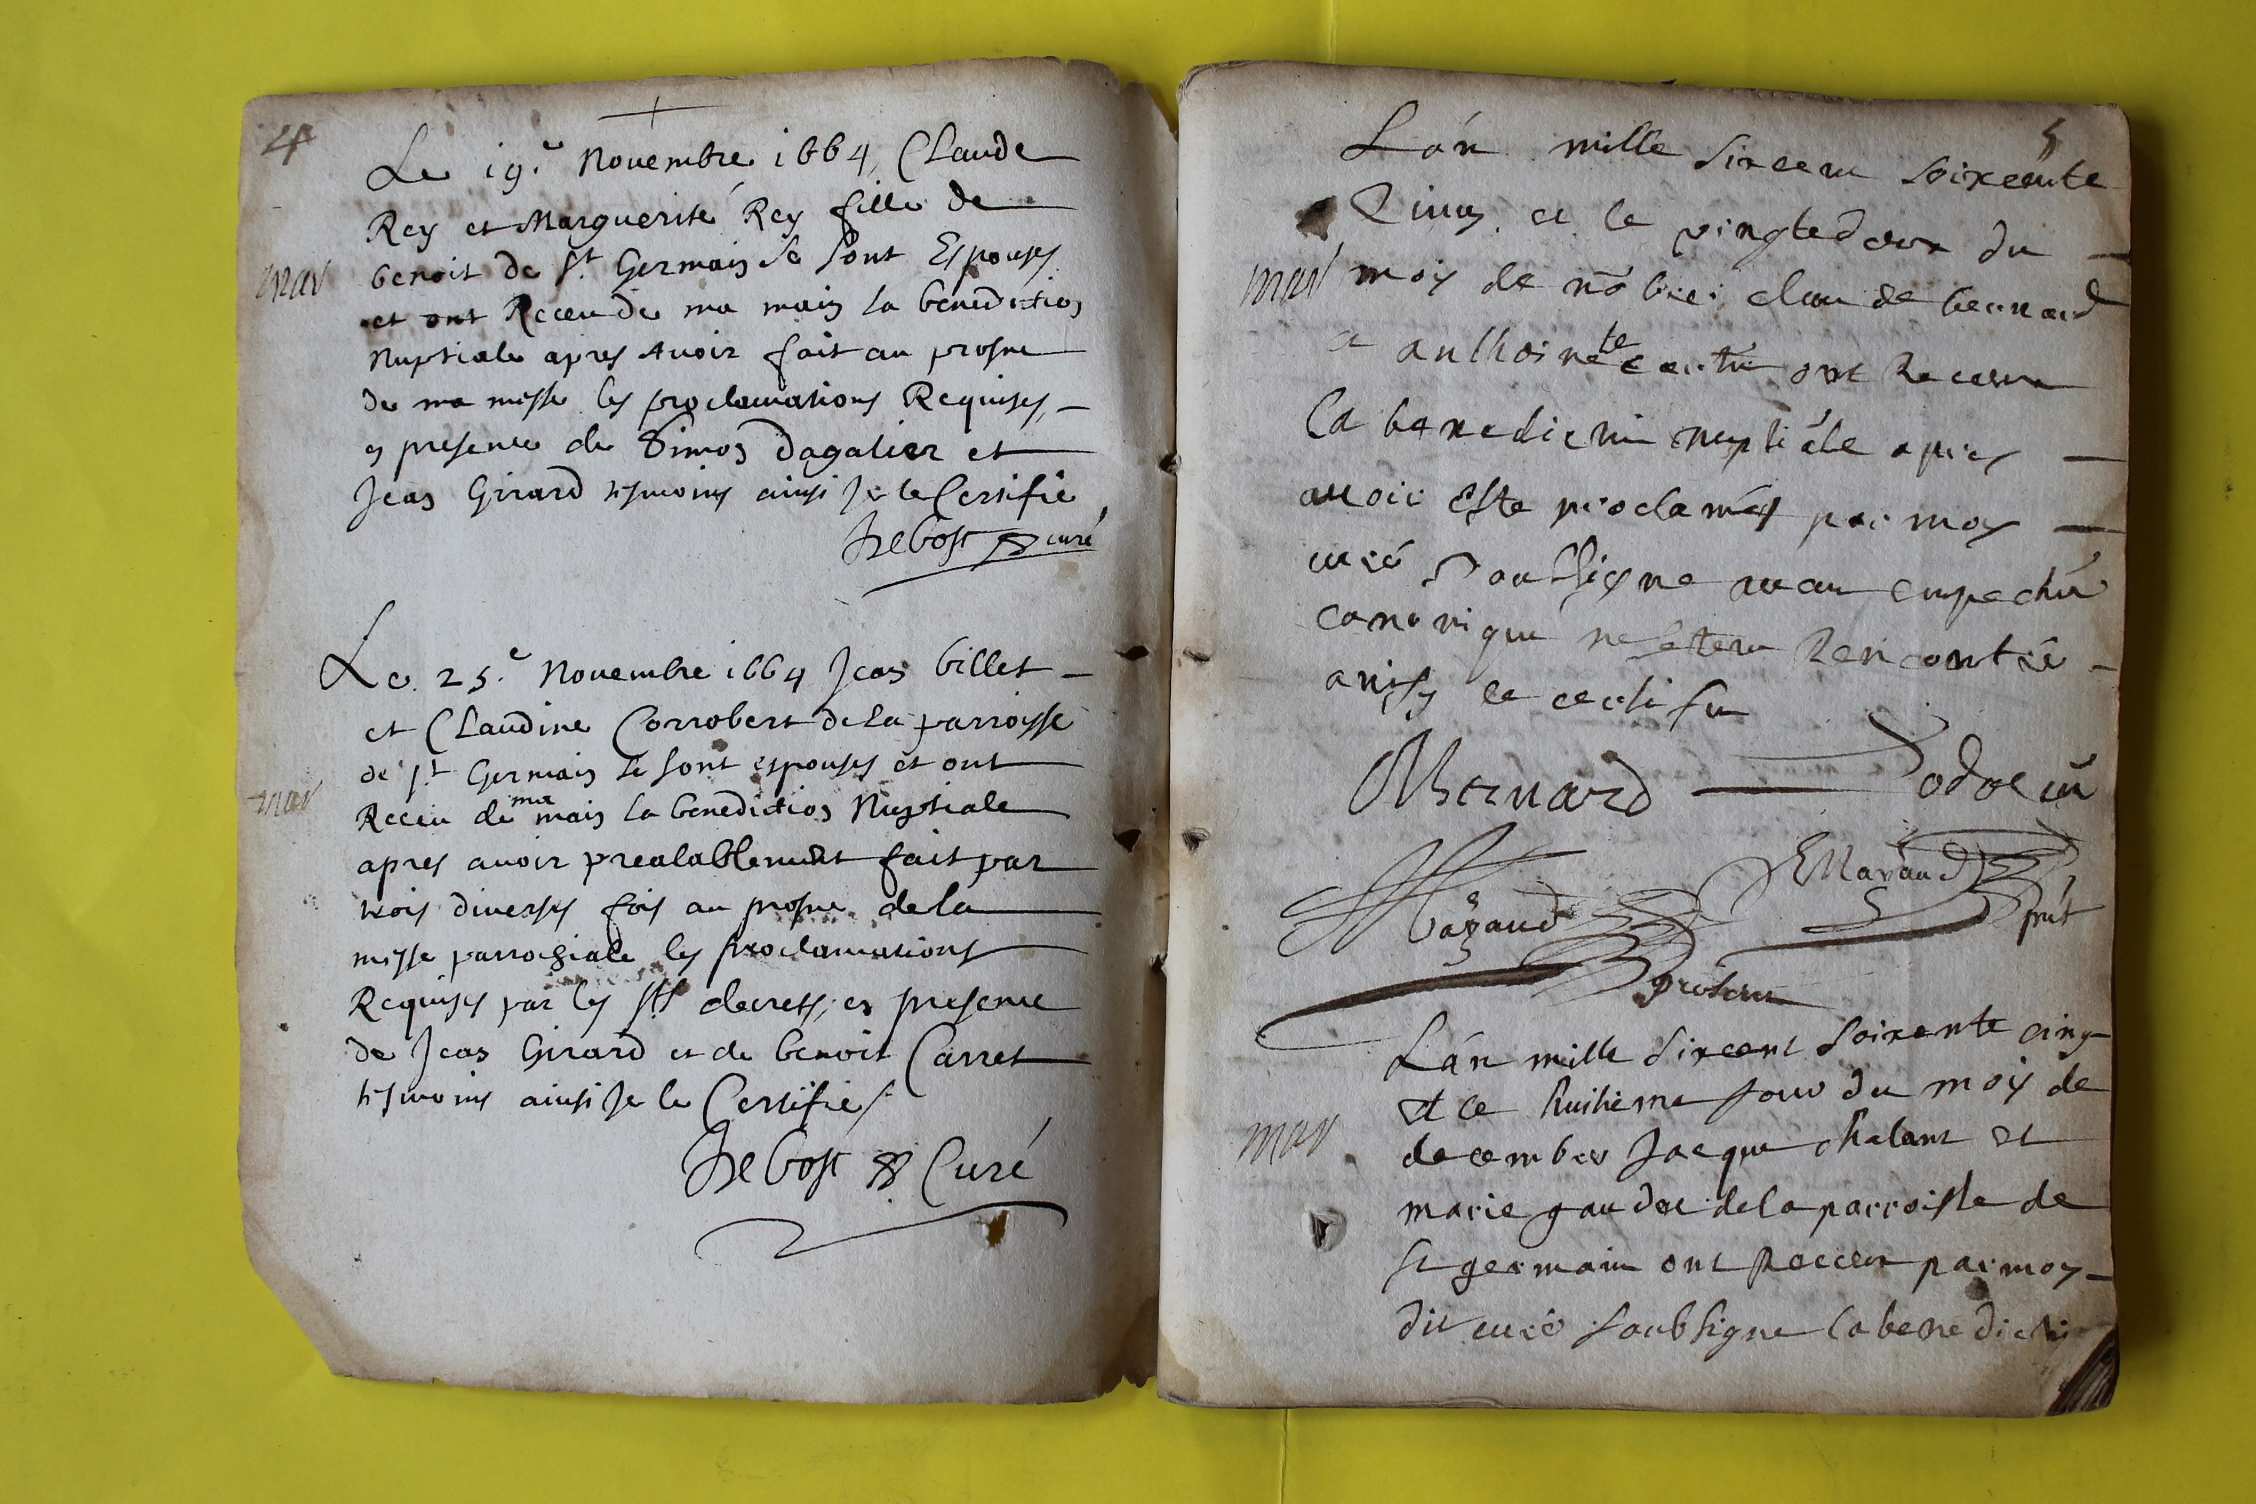 4
Le 19.e Novembre 1664, Claude
Rey et Marguerite Rey fille de
mar
benoit de St. Germain se sont Espousés
et ont Receu de ma main la benediction
Nuptiale apres Avoir fait au prosne
de ma messe les proclamations Requises,
en presence de Simon Dagalier et
Jean Girard tesmoins ainsi Je le Certifie
Trebost curé
Le. 25.e Novembre 1664 Jean billet
et Claudine Corrobert de la parroisse
de St Germain se sont espousés et ont
mar
Receu de ma main la benediction Nuptiale
apres avoir prealablement fait par
trois diverses fois au prosne de la
messe parrochiale les proclamations
Requises par les Sts decrets, en presence
de Jean Girard et de benoit Carret
tesmoins ainsi Je le Certifie
Trebost Curé
5
L'án mille sixcent soixcente
Cinq. et le vingtedeux du
mar
mois de nōbre claude bernard
et anthoinette ont Receu
la benediction nuptiale apres
avoir este proclamés par moy
curé soubsigne aucun empechē
canonique ne sestent Rencontré
ainsy le certifie
Bernard
curé
prēt
present
L'án mille sixcent soixente cinq
et le huitieme jour du mois de
mar
decembre Jacque chalant et
marie gaudet de la parroisse de
St germain ont Receu par moy
dit curé soubsigne la benedicti